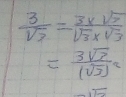 3/√3 = 3×√3/√3×√3
= 3√3/(√3)²
√3